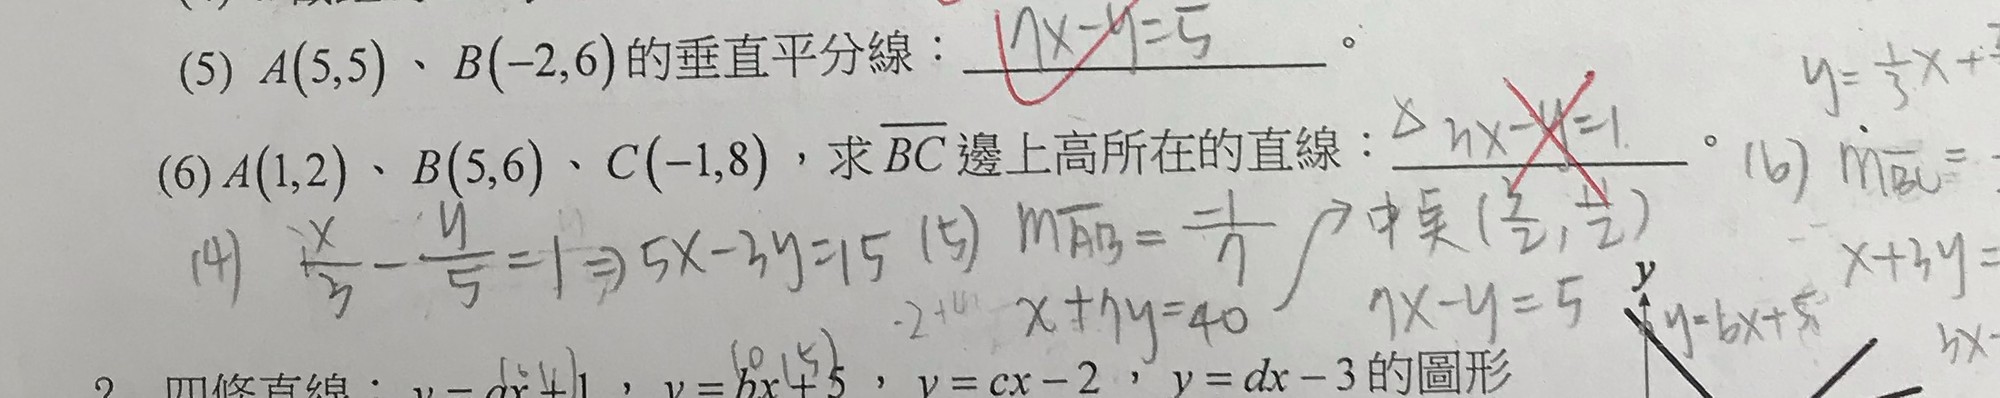 (5) A(5,5)、B(−2,6)的垂直平分線：7x−y=5。
y=1/3x+
(6) A(1,2)、B(5,6)、C(−1,8)，求BC邊上高所在的直線：3x−y=1。
(6) mBC=
(4) x/3 − y/5 = 1 ⇒ 5x−3y=15
(5) mAB = −1/7
中點(3/2, 11/2)
x+3y=
x+7y=40
7x−y=5
y
y=bx+5
3x-
2. 四條直線：y=ax+1，y=bx+5，y=cx−2，y=dx−3的圖形